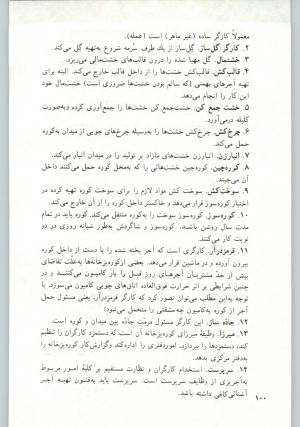 معمولاً کارگر ساده (غیر ماهر) است (عمله).
۲. کارگر گل‌ساز. گل‌ساز از یك طرف سُرمه شروع به‌تهیه گل می‌کند.
۳. خشتمال. گل مهیا شده را درون قالب‌های خشت‌مالی می‌ریزد.
۴. قالب‌کش. قالب‌کش خشت‌ها را از داخل قالب خارج می‌کند. البته برای
تهیه آجرهای بهمنی (که سالم بودن خشت‌ها ضروری است) خشتمال خود
این کار را انجام می‌دهد.
۵. خشت جمع کن. خشت‌جمع کن خشت‌ها را جمع‌آوری کرده و به‌صورت
کلیله درمی‌آورد.
۶. چرخ‌کش. چرخ‌کش خشت‌ها را به‌وسیله چرخ‌های چوبی از میدان به‌کوره
حمل می‌کند.
۷. انبارزن. انبارزن خشت‌های مازاد بر تولید را در میدان انبار می‌کند.
۸. کوره‌چین. کوره‌چین خشت‌هائی را که به‌محل کوره حمل می‌کنند داخل
آن می‌چیند.
۹. سوخت‌کش. سوخت کش مواد لازم را برای سوخت کوره تهیه کرده در
اختیار کوره‌سوز قرار می‌دهد و خاکستر داخل کوره را از آن خارج می‌کند.
۱۰. کوره‌سوز. کوره‌سوز سوخت را به‌کوره منتقل می‌کند. کوره باید در تمام
مدت سال روشن باشد، کوره‌سوز و شاگردش به‌طور شبانه روزی در دو
نوبت کار می‌کنند.
۱۱. قرمزدرآر. کارگری است که آجر پخته شده را با دست از داخل کوره
بیرون آورده و در ماشین قرار می‌دهد. بعضی از کوره‌پزخانه‌ها به‌علت تقاضای
بیش از حدّ مشتریان آجرهای روز قبل را بار کامیون می‌کنند و در
چنین شرایطی بر اثر حرارت فوق‌العاده اتاق‌های چوبی کامیون می‌سوزد. با
توجه به‌این مطلب می‌توان تصور کرد که کارگر قرمزدرآر، یعنی مسئول حمل
آجر از کوره به‌کامیون چه‌مشقتی را متحمل می‌شود!
۱۲. جاده‌ ساز. این کارگر مسئول مرمّت جادّه بین میدان و کوره است.
۱۳. میرزا. وظیفهٔ میرزای کوره‌پزخانه آن است که دستمزد کارگران را تنظیم
کند، دستمزدها را بپردازد، امور دفتری را اداره‌کند و گزارش‌کار کوره‌پزخانه را
به‌دفتر مرکزی بدهد.
۱۴. سرپرست. استخدام کارگران و نظارت مستقیم بر کلیهٔ امور مربوط
به‌آجرپزی از وظایف سرپرست است. سرپرست باید به‌فنون تهیه آجر
آشنائی‌کافی داشته باشد.
۱۰۰